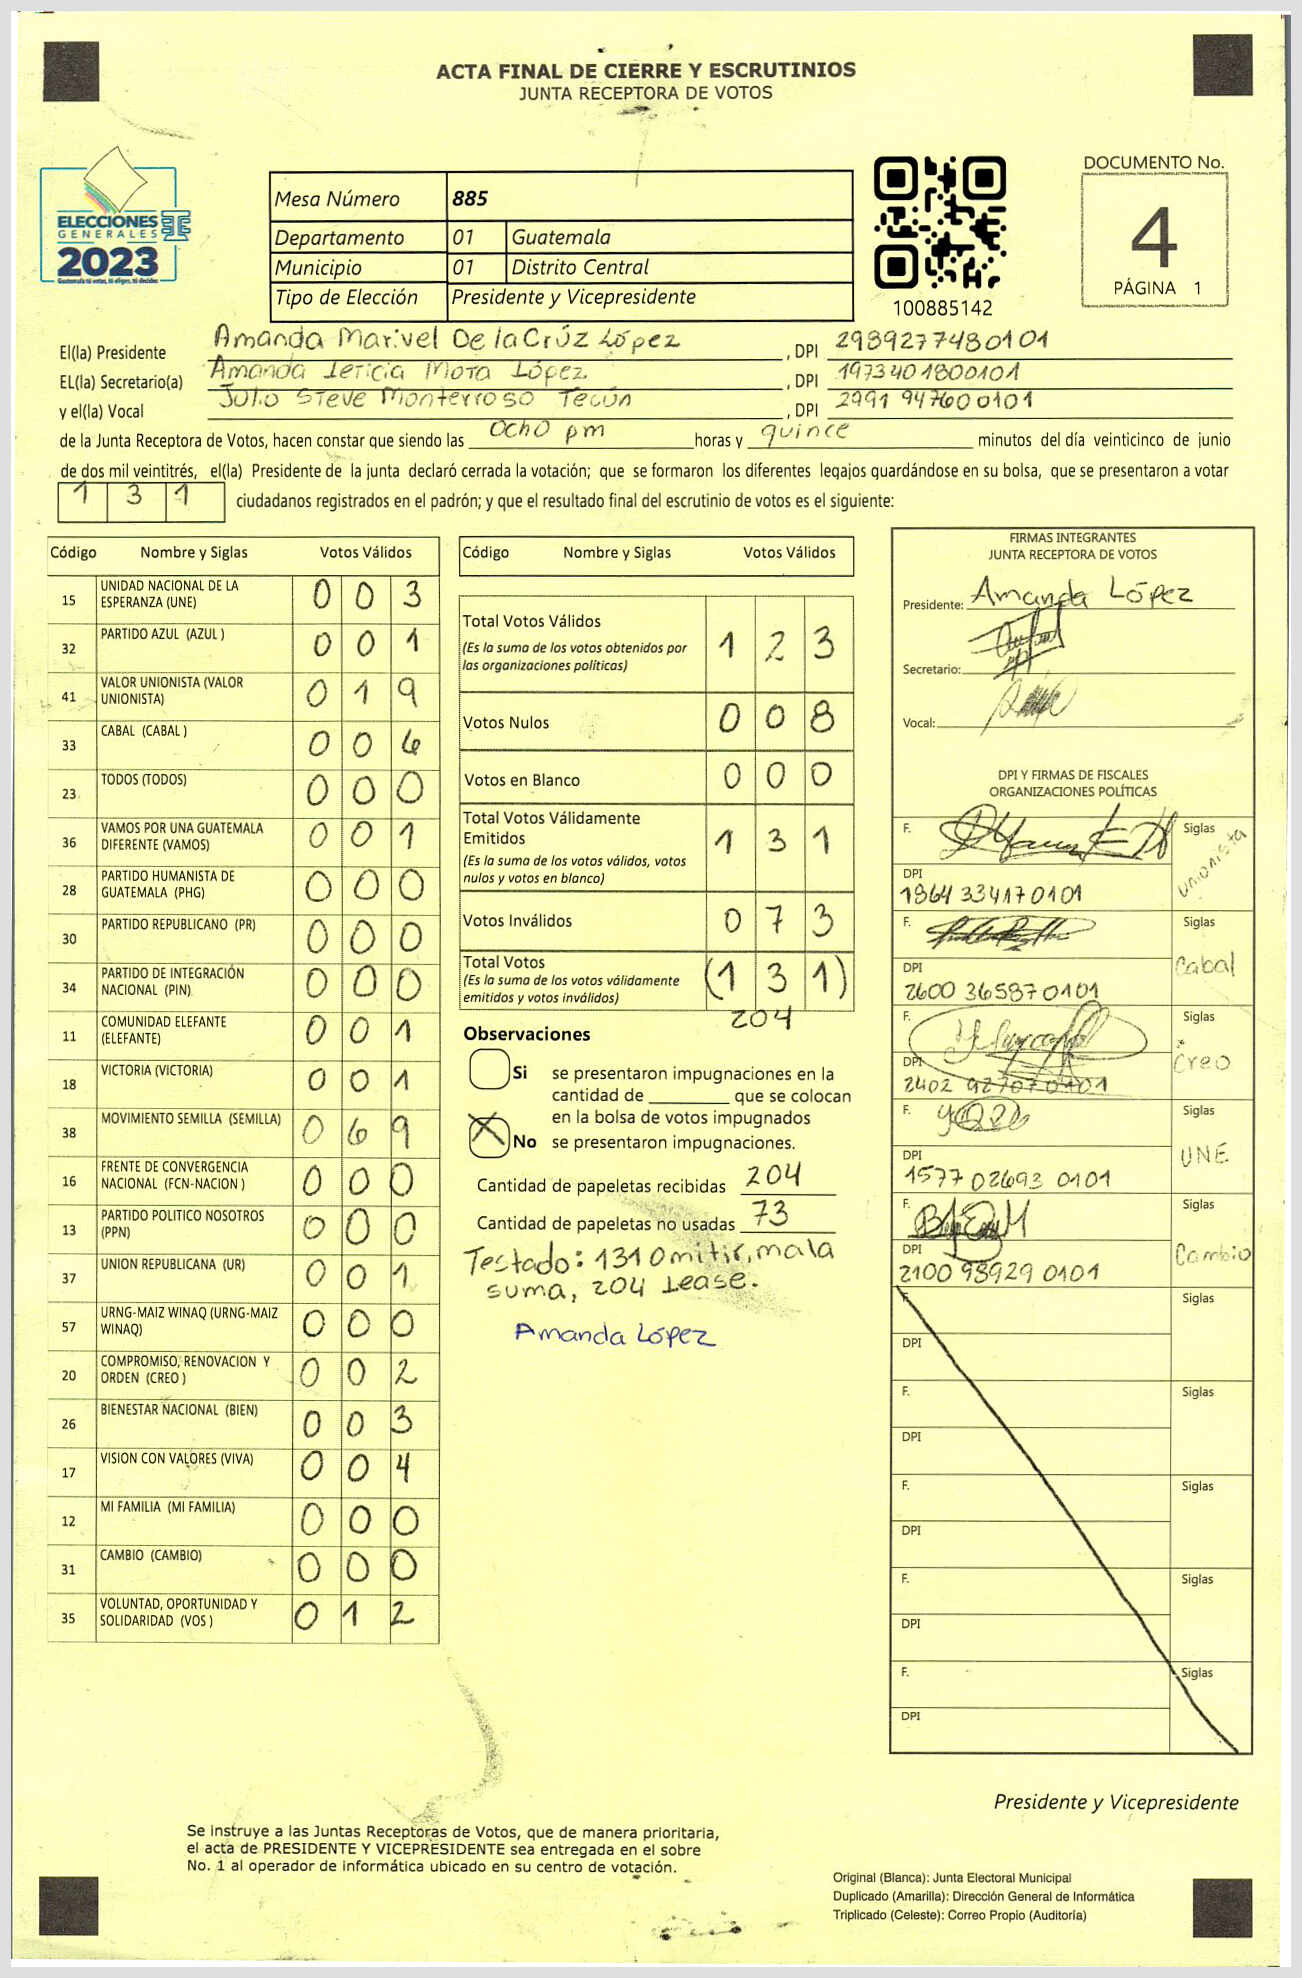 ACTA FINAL DE CIERRE Y ESCRUTINIOS
JUNTA RECEPTORA DE VOTOS
ELECCIONES
GENERALES
2023
Mesa Número 885
Departamento 01 Guatemala
Municipio 01 Distrito Central
Tipo de Elección Presidente y Vicepresidente
100885142
DOCUMENTO No.
4
PÁGINA 1
El(la) Presidente Amanda Marivel De la Crúz López , DPI 2989277480101
EL(la) Secretario(a) Amanda Leticia Mota López , DPI 1973401800101
y el(la) Vocal Julio Steve Monterroso Tecún , DPI 2991 947600101
de la Junta Receptora de Votos, hacen constar que siendo las ocho pm horas y quince minutos del día veinticinco de junio
de dos mil veintitrés, el(la) Presidente de la junta declaró cerrada la votación; que se formaron los diferentes legajos guardándose en su bolsa, que se presentaron a votar
1 3 1 ciudadanos registrados en el padrón; y que el resultado final del escrutinio de votos es el siguiente:
Código Nombre y Siglas Votos Válidos
15 UNIDAD NACIONAL DE LA ESPERANZA (UNE) 0 0 3
32 PARTIDO AZUL (AZUL ) 0 0 1
41 VALOR UNIONISTA (VALOR UNIONISTA) 0 1 9
33 CABAL (CABAL ) 0 0 6
23 TODOS (TODOS) 0 0 0
36 VAMOS POR UNA GUATEMALA DIFERENTE (VAMOS) 0 0 1
28 PARTIDO HUMANISTA DE GUATEMALA (PHG) 0 0 0
30 PARTIDO REPUBLICANO (PR) 0 0 0
34 PARTIDO DE INTEGRACIÓN NACIONAL (PIN) 0 0 0
11 COMUNIDAD ELEFANTE (ELEFANTE) 0 0 1
18 VICTORIA (VICTORIA) 0 0 1
38 MOVIMIENTO SEMILLA (SEMILLA) 0 6 9
16 FRENTE DE CONVERGENCIA NACIONAL (FCN-NACION ) 0 0 0
13 PARTIDO POLITICO NOSOTROS (PPN) 0 0 0
37 UNION REPUBLICANA (UR) 0 0 1
57 URNG-MAIZ WINAQ (URNG-MAIZ WINAQ) 0 0 0
20 COMPROMISO, RENOVACION Y ORDEN (CREO ) 0 0 2
26 BIENESTAR NACIONAL (BIEN) 0 0 3
17 VISION CON VALORES (VIVA) 0 0 4
12 MI FAMILIA (MI FAMILIA) 0 0 0
31 CAMBIO (CAMBIO) 0 0 0
35 VOLUNTAD, OPORTUNIDAD Y SOLIDARIDAD (VOS ) 0 1 2
Código Nombre y Siglas Votos Válidos
Total Votos Válidos 1 2 3
(Es la suma de los votos obtenidos por
las organizaciones políticas)
Votos Nulos 0 0 8
Votos en Blanco 0 0 0
Total Votos Válidamente
Emitidos 1 3 1
(Es la suma de los votos válidos, votos
nulos y votos en blanco)
Votos Inválidos 0 7 3
Total Votos (1 3 1)
(Es la suma de los votos válidamente
emitidos y votos inválidos)
204
Observaciones
Si se presentaron impugnaciones en la
cantidad de ________ que se colocan
en la bolsa de votos impugnados
No se presentaron impugnaciones.
Cantidad de papeletas recibidas 204
Cantidad de papeletas no usadas 73
Testado: 131 Omitir, mala
suma, 204 Lease.
Amanda López
FIRMAS INTEGRANTES
JUNTA RECEPTORA DE VOTOS
Presidente: Amanda López
Secretario:
Vocal:
DPI Y FIRMAS DE FISCALES
ORGANIZACIONES POLÍTICAS
F. Siglas Unionista
DPI
1864 334170101
F. Siglas Cabal
DPI
2600 365870101
F. Siglas Creo
DPI
2402 927070101
F. Siglas UNE
DPI
1577 02693 0101
F. Siglas Cambio
DPI
2100 93929 0101
F. Siglas
DPI
F. Siglas
DPI
F. Siglas
DPI
F. Siglas
DPI
F. Siglas
DPI
Presidente y Vicepresidente
Se instruye a las Juntas Receptoras de Votos, que de manera prioritaria,
el acta de PRESIDENTE Y VICEPRESIDENTE sea entregada en el sobre
No. 1 al operador de informática ubicado en su centro de votación.
Original (Blanca): Junta Electoral Municipal
Duplicado (Amarilla): Dirección General de Informática
Triplicado (Celeste): Correo Propio (Auditoría)